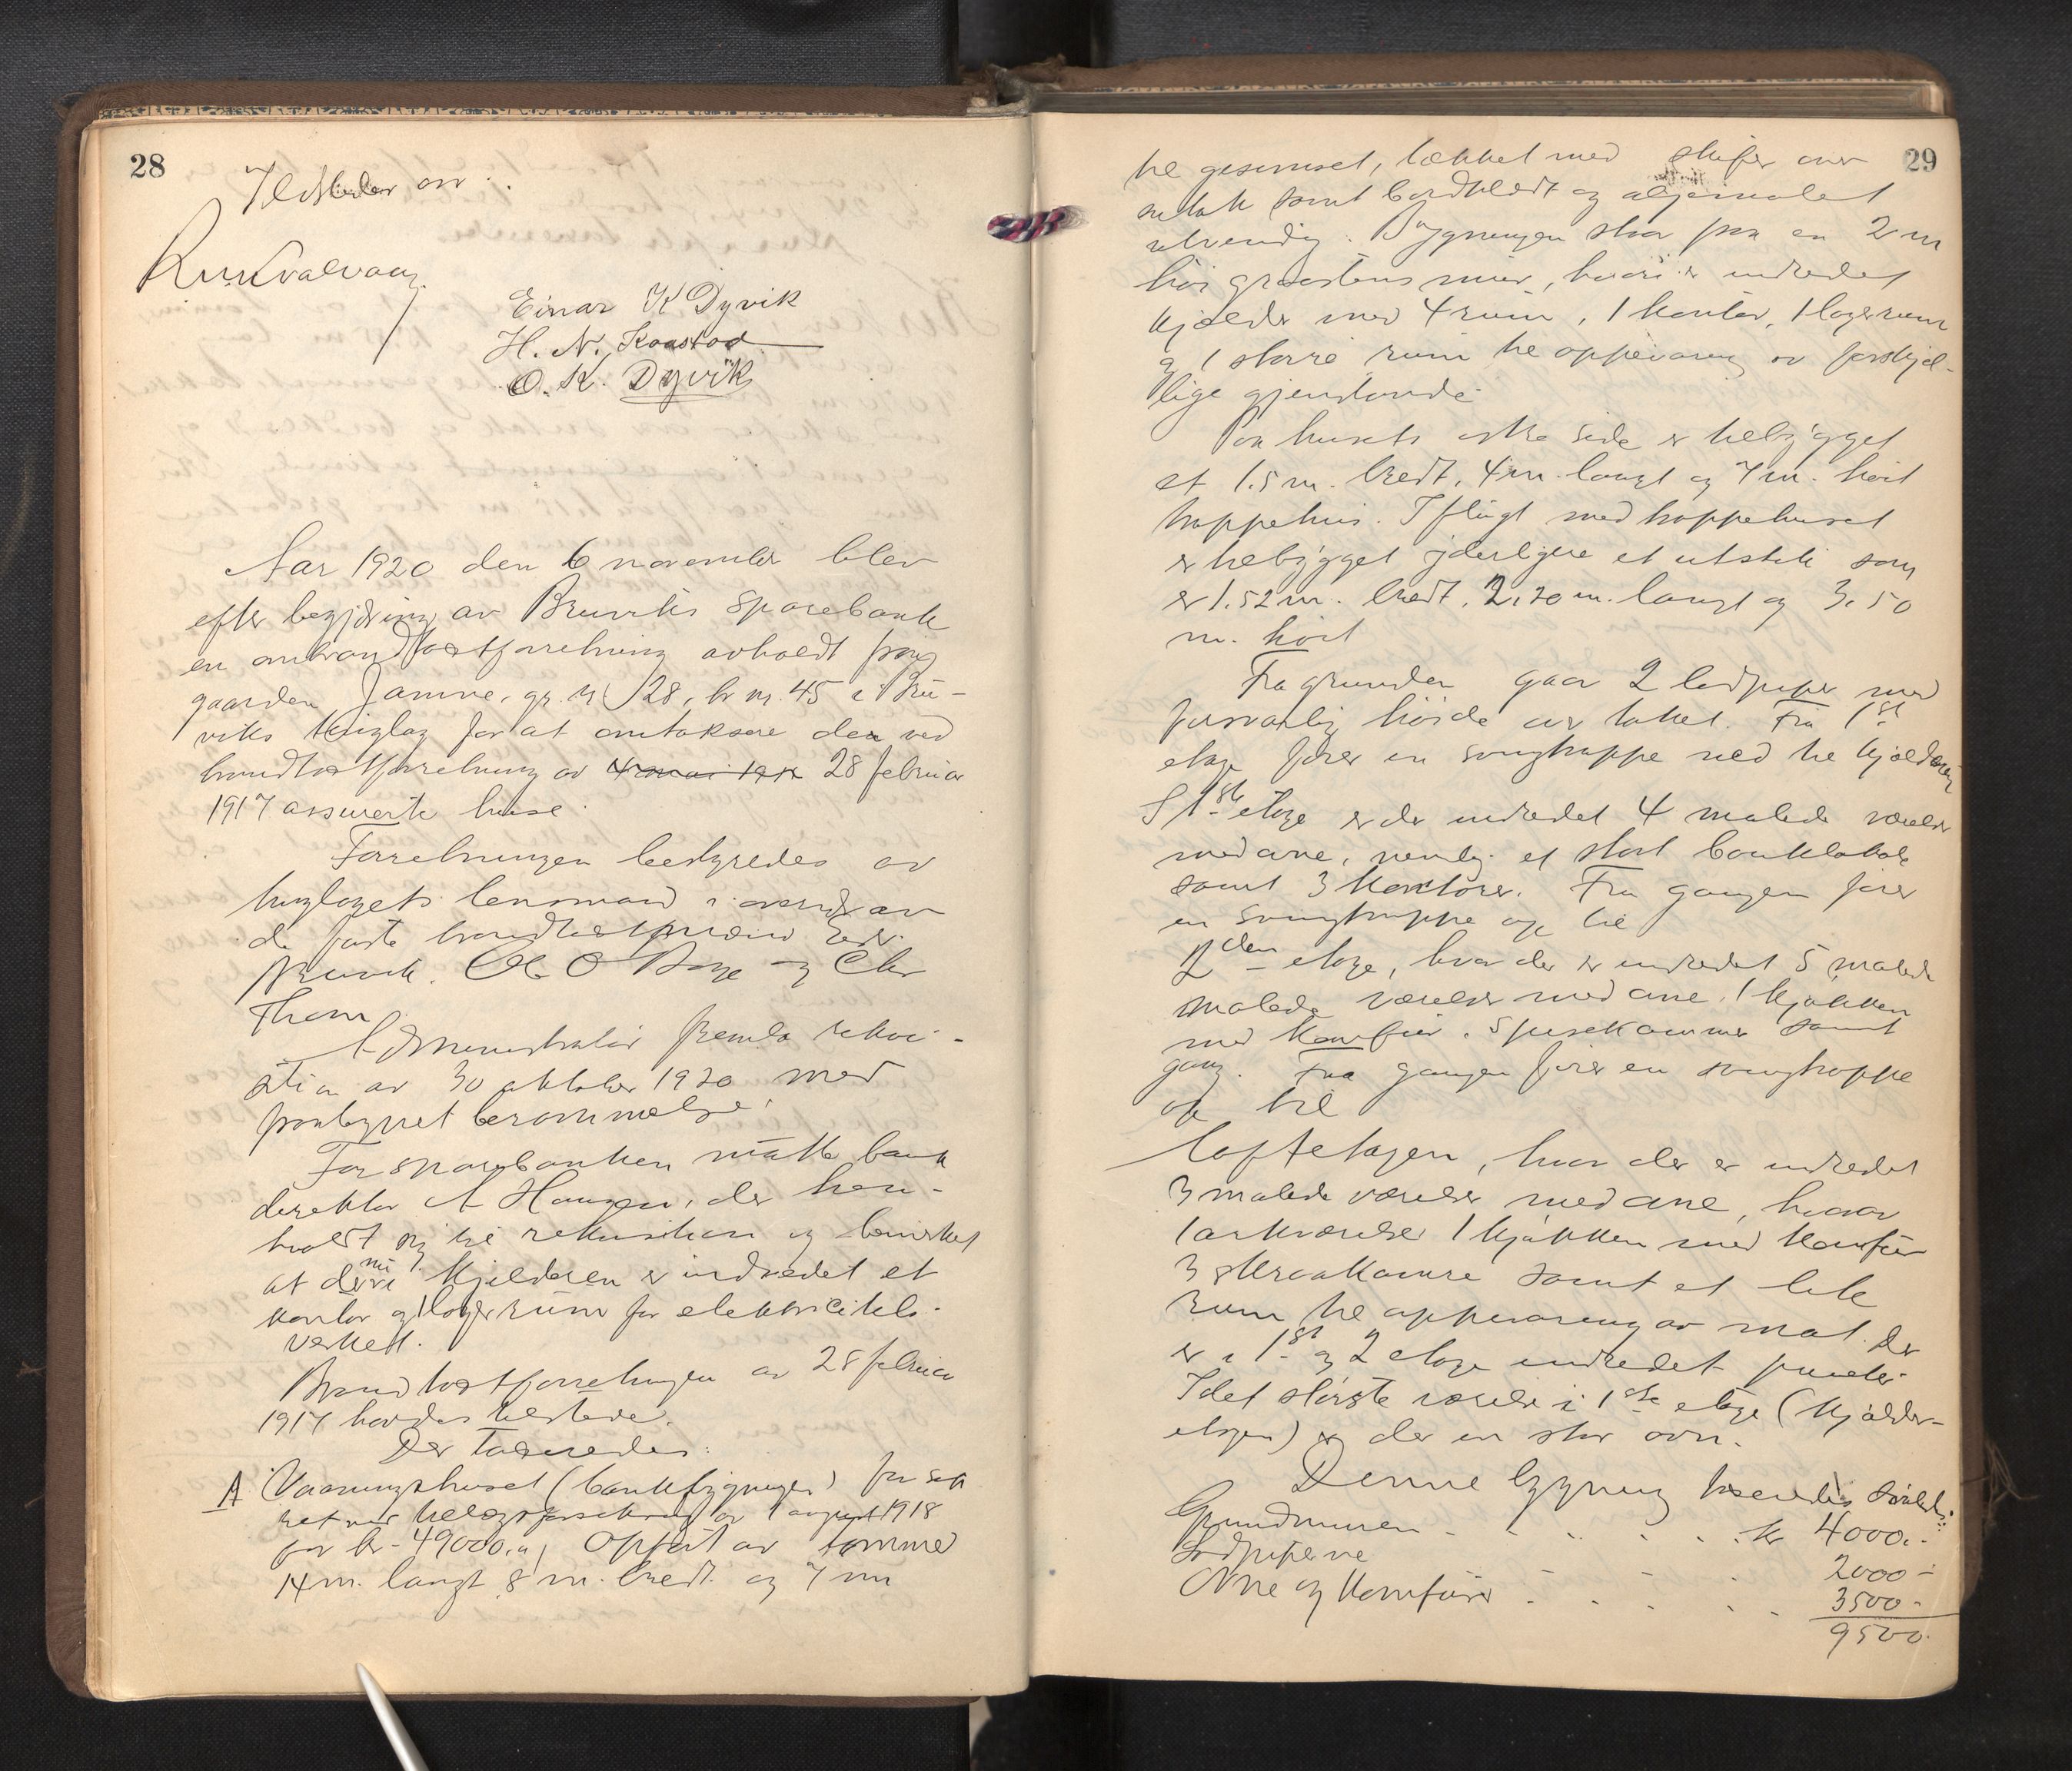 28
Ildsteder ovn.
Einar K Dyvik
H. N. Kaastad
O. K. Dyvik
Aar 1920 den 6 november blev
efter begjæring av Bruviks Sparebank
en ombrandtakstforretning avholdt paa
gaarden Jamne, gr. nr 28, br nr. 45 i Bru-
viks tinglag for at omtaksere den ved
brandtakstforretning av 28 februar
1917 assurerte huse.
Forretningen bestyredes av
tinglagets lensmand i overvær av
de faste brandtakstmænd
Bruvik. Ole O og Chr
Thom
Administrator fremla rekvi-
sition av 30 oktober 1920 med
paategnet berammelse.
For sparebanken møtte bank
direktør A Haugen, der hen-
holdt sig til rekvisition og bemerket
at der nu i kjelderen er indredet et
kontor og 1 lagerrum for elektricitets-
verket.
Brandtakstforretningen av 28 februar
1917 havdes tilstede.
Der takseredes:
A Vaaningshuset (bankbygningen) forsik
ret ved tillægsforsikring av 1 august 1918
for kr 49000.-, Opført av tømmer
14 m. langt 8 m. bredt og 7 m
29
til gesimset, tækket med skifer over
sutak samt bordklædt og oljemalet
utvendig. Bygningen staar paa en 2 m
høi graastens mur, hvori er indredet
kjelder med 4 rum, 1 kontor, 1 lagerrum
og 1 større rum til oppevaring av forskjel-
lige gjenstande.
Paa husets østre side er tilbygget
et 1.5 m. bredt, 4 m. langt og 7 m. høit
trappehus. I flugt med trappehuset
er tilbygget yderligere et utstik som
er 1.52 m. bredt, 2,20 m. langt og 3.50
m. høit
Fra grunden gaar 2 ledpiper med
forsvarlig høide over taket. Fra 1st
etage fører en svingtrappe ned til kjelderen
I 1ste etage er der indredet 4 malede værelser
med ovne, nemlig et stort banklokale
samt 3 kontorer. Fra gangen fører
en svingtrappe op til
2den etage, hvor der er indredet 5 malede
malede værelser med ovne, 1 kjøkken
med komfur, spisekammer samt
gang. Fra gangen fører en svingtrappe
op til
loftetagen, hvor der er indredet
3 malede værelser med ovne, hvorav
1 arkværelse 1 kjøkken med komfur
3 skraakamre samt et lite
rum til oppevaring av mat. Der
er i 1st og 2 etage indredet
I det største værelse i 1ste etage (kjelder-
etagen) er der en stor ovn.
Denne bygning taxeredes saaledes:
Grundmuren - - - - - kr 4000.-
Ledpiperne - - - 2000 -
Ovne og Komfurer - - - - - 3500 -
9500.